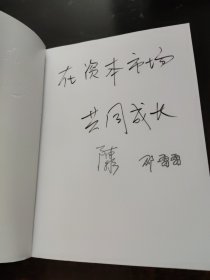 在资本市场
共同成长